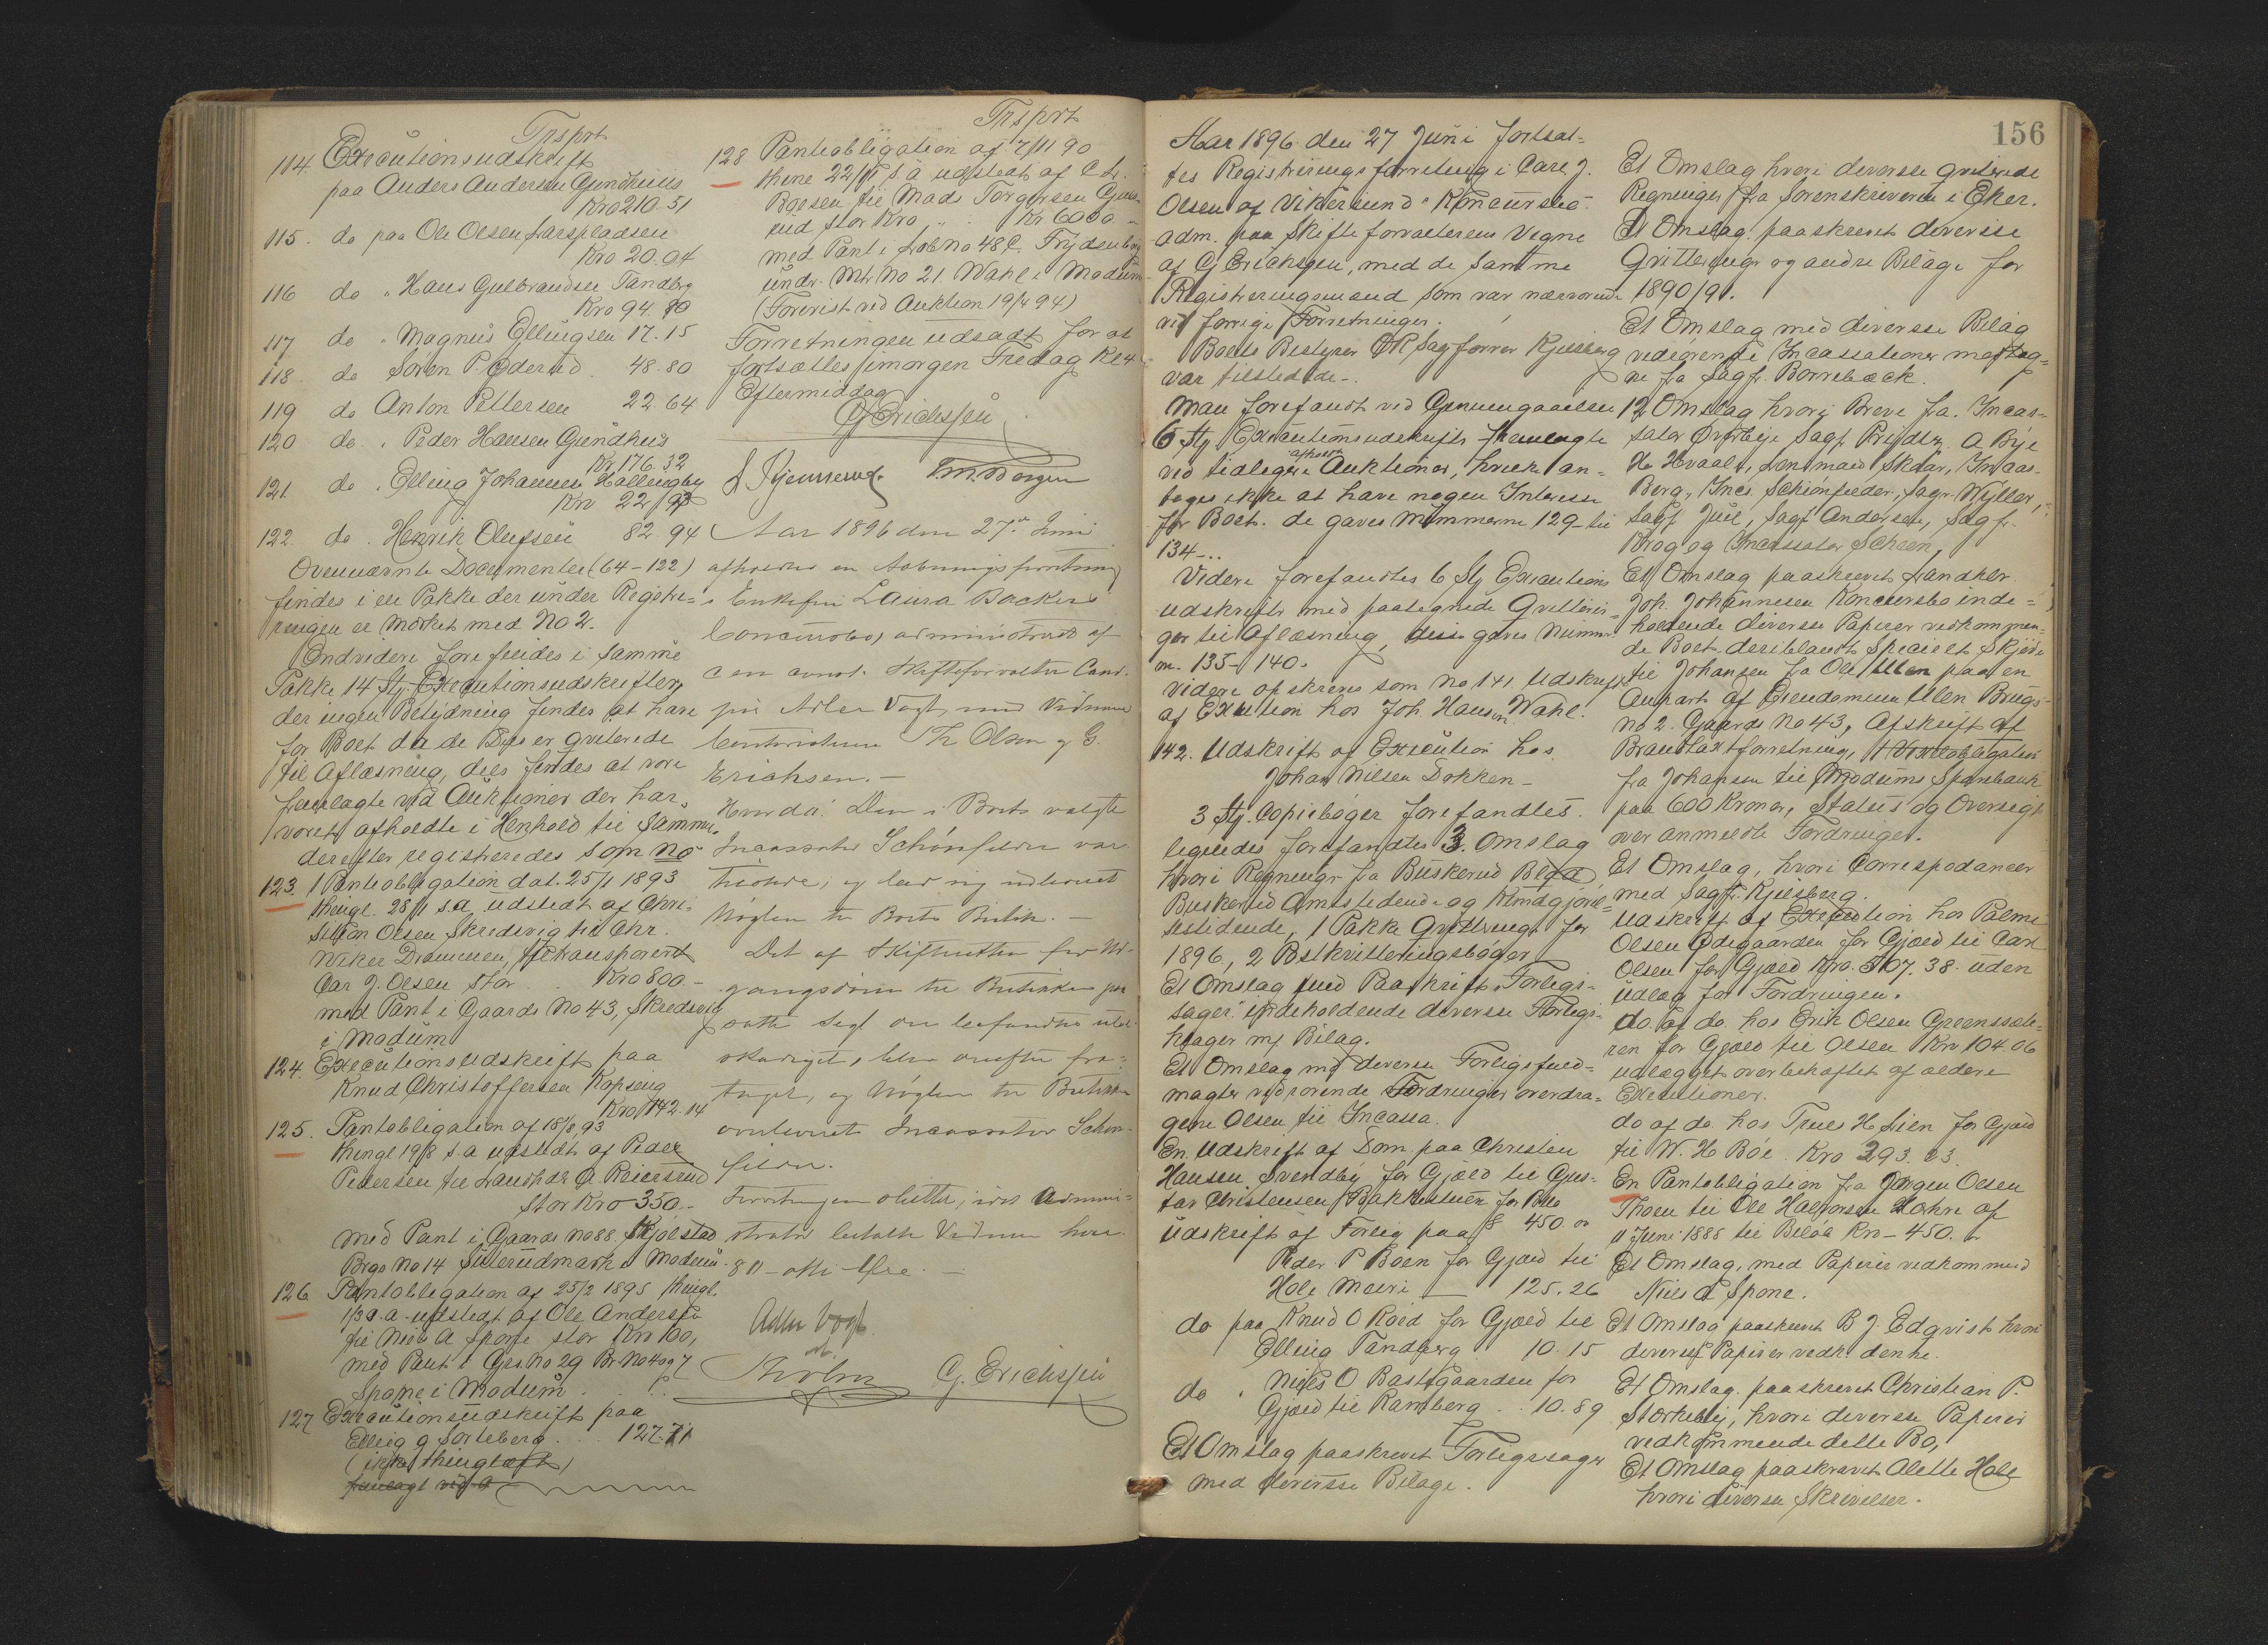 Trsprt
114. Executionsudskrift
paa Anders Andersen Gundhuus
Kro 210. 51
115. do paa Ole Olsen Larspladsen
Kro 20. 04
116 do " Hans Gulbrandsen Tandberg
Kro 94. 80
117 do " Magnus Ellingsen 17. 15
118. do Søren P. Øderud 48. 80
119 do Anton Pettersen 22. 64
120 do " Peder Hansen Gundhus
Kr 176. 32
121. do " Elling Johannesen Hallingby
Kro 22
122. do " Henrik Olufsen 82. 94
Ovennævnte Documenter (64-122)
findes i en Pakke der under Registre-
ringen er mærket med No 2.
Endvidere forefindes i samme
Pakke 14 Stj. Executionsudskrifter,
der ingen Betydning findes at have
for Boet da de Dels er qvitterede
til Aflæsning, dels findes at være
fremlagte ved Auktioner der har
været afholdte i Henhold til samme.
derefter registreredes som No
123. 1 Panteobligation dat. 25/1 1893
thingl. 28/1 s.a. udstedt af Chri-
stian Olsen Skredsvig til Chr.
Wiker Drammen, transporeret
Car J. Olsen stor Kro 800 -
med Pant i Gaards No 43, Skredsvig
i Modum
124. Executionsudskrift paa
Knud Christoffersen Kopseng
Kro 142. 14
125. Pantobligation af 18/8 93
thingl 19/8 s.a udstedt af Peder
Pedersen til Landhdr A. Reiersrud
stor Kro 350.-
med Pant i Gaards No 88. Skjolstad
Brgs No 14 Suterudmark i Modum.
126 Pantobligation af 25/2 1895 thingl.
1/3 s.a. udstedt af Ole Andersen
til Niels A Spone stor Kro 100,
med Pant i Grs. No 29 Br. No 4 og 7
Spone i Modum
127 Executionsudskrift paa
Elling G Sørteberg 127. 71
(ikke thinglæst)
fremlagt ved A
Trsprt
128 Panteobligation af 7/11 90
thinl 22/11 s. a udstedt af C. L.
Boesen til Mads Torgersen Gjus-
rud stor Kro " Kr 6000 -
med Pant i Løbno 48 C. Frydenberg
under Mtr No 21. Wahl i Modum
(Forevist ved Auktion 19/4 94)
Forretningen udsadt for at
fortsættes imorgen Fredag Kl 4
Eftermiddag
CJ Erichssen
T. M. Borgen
Aar 1896 den 27de Juni
afholdtes en Aabningsforretning
i Enkefru Laura Backers
Concursbo, administreret af
den const. Skifteforvalter Cand.
jur Adler Vogt, med Vidnerne
Contoristerne Th Olsen og G.
Erichsen. -
Hvorda: Den i Boets valgte
Incassator Schönfelder var
tilstede, og lod sig udleveret
Nøglen til Boets Butik. -
Det af Skifteretten for Ind-
gangsdøren til Butikken paa-
satte Segl var befundtes ube-
skadiget, blev derefter fra-
taget, og Nøglen til Butikken
overleveret Incassator Schön-
felder.
Forretningen sluttet, idet Admini-
strator betalte Vidnerne hver
80 - otti Øre. -
Adler Vogt
Th Olsen G. Erichssen
156
Aar 1896 den 27 Juni fortsat-
tes Registreringsforretning i Carl J.
Olsen af Vikersund's Koncursbo.
adm. paa Skifteforvalterens Vegne
af CJ Erichssen, med de samme
Registreringsmænd som var nærværende
ved forrige Forretninger.
Boets Bestyrer OR Sagfører Kjelsberg
var tilstedede -.
Man forefandt ved Gjennemgaaelsen
6 Stj Executionsudskrifter fremlagte
ved tidligere afholdte Auktioner, hvilke an-
tages ikke at have nogen Interesse
for Boet. de gaves Nummerne 129 - til
134 -..
Videre forefandtes 6 Stj Executions
udskrifter med paategnede Qvitterin-
ger til Aflæsning, disse gaves Numme-
rne. 135 - 140.
Videre opskreves som No 141 Udskrift
af Execution hos Joh. Hansen Wahl.
142. Udskrift af Execution hos
Johan Nilsen Dokken -
3 Stj. Copiebøger forefandtes.
ligeledes forefandtes 3. Omslag
hvori Regninger fra Buskerud Blad
Buskerud Amtstidende og Kundgjørel-
sestidende, 1 Pakke Qvitteringer for
1896, 2 Postkvitteringsbøger
Et Omslag med Paaskrift "Forligs-
sager" indeholdende diverse Forligs-
klager m/ Bilag.
Et Omslag m/ diverse Forligsfuld-
magter vedrørende Fordringer overdra-
gene Olsen til Incassa.
En Udskrift af Dom paa Christen
Hansen Svendby for Gjæld til Gus-
tav Christensen Bakkestuen for
Udskrift af Forlig paa 450. 00
Peder P Boen for Gjæld til
Hole Meieri 125. 26
do paa Knud O Roed for Gjæld til
Elling Tandberg 10. 15
do " Niels O Bastgaarden for
Gjæld til Ramberg . . 10. 89
Et Omslag paaskrevet Forligssager
med diversse Bilage.
Et Omslag hvori diversse qviterede
Regninger fra Sorenskriveren i Eker.
Et Omslag paaskrevet diversse
Qvitteringer og andre Bilage for
1890/91.
Et Omslag med diversse Bilag
vedrørende Incassationer modtag-
ne fra Sagf. Borrebæck.
12 Omslag hvori Breve fra Incas-
sator Ørbye Sagf. Prydtz. A Bye
Ho Hvaale, Lensmand Skaar, Incas-
Berg, Incs. Schiönfelder, Sagr. Wyller,
Sagf Juul, Sagf Andersen, Sagfr.
Krog og Incassator Scheen,
Et Omslag paaskrevet Landhdr.
Joh. Johannesen Koncursbo inde-
holdende diversse Papirer vedkommen-
de Boet deriblandt Specielt Skjøde
til Johansen fra Ole Ullen paa en
Anpart af Eiendommen Ullen Brugs-
No 2. Gaards No 43, Afskrift af
Brandtaxtforretning, 1 Vexelobligation
fra Johansen til Modums Sparebank
paa 600 Kroner, Status og Oversigt
over anmeldte Fordringer.
Et Omslag, hvori Correspodancer
med Sagfr. Kjelsberg.
Udskrift af Execution hos Palme
Olsen Ødegaarden for Gjæld til Carl
Olsen for Gjæld Kro. 507. 38. uden
udlæg for Fordringen.
do. af do. hos Erik Olsen Greensæte-
ren for Gjæld til Olsen Kro 104. 06
udlægget overbehæftet af ældere
Executioner.
do af do. hos Truls H Lien for Gjæld
til W. H Bøe Kro 293. 23.
En Pantobligation fra Jørgen Olsen
Thoen til Ole Halvorsen af
11 Juni 1885 til Beløb Kro - 450. -
Et Omslag, med Papirer vedkommend
Niels A Spone.
Et Omslag paaskrevet B J. Edqvist hvori
diverse Papirer vedk. denne.
Et Omslag. paaskrevet Christian P.
Størkeby, hvori diversse Papirer
vedkommende dette Bo,
Et Omslag paaskrevet Alette Hole
hvori diversse Skrivelser.